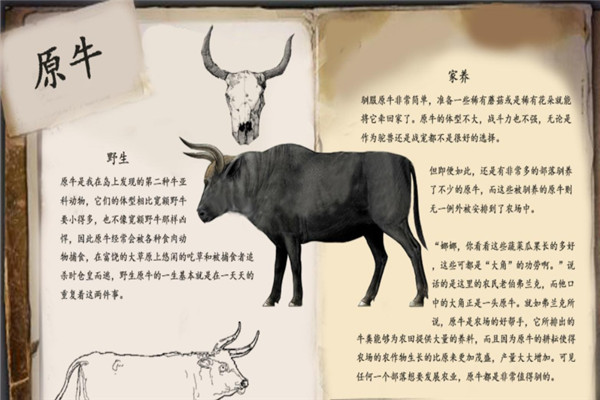 原牛
野生
原牛是我在岛上发现的第二种牛亚
科动物，它们的体型相比宽额野牛
要小得多，也不像宽额野牛那样凶
悍，因此原牛经常会被各种食肉动
物捕食，在富饶的大草原上悠闲的吃草和被捕食者追
杀时仓皇而逃，野生原牛的一生基本就是在一天天的
重复着这两件事。
家养
驯服原牛非常简单，准备一些稀有蘑菇或是稀有花朵就能
将它牵回家了。原牛的体型不大，战斗力也不强，无论是
作为驼兽还是战宠都不是很好的选择。
但即便如此，还是有非常多的部落驯养
了不少的原牛，而这些被驯养的原牛则
无一例外被安排到了农场中。
“嘟嘟，你看看这些蔬菜瓜果长的多好
，这些可都是“大角”的功劳啊。”说
话的是这里的农民老伯弗兰克，而他口
中的大角正是一头原牛。就如弗兰克所
说，原牛是农场的好帮手，它所排出的
牛粪能够为农田提供大量的养料，而且因为原牛的耕耘使得
农场的农作物生长的比原来更加茂盛，产量大大增加。可见
任何一个部落想要发展农业，原牛都是非常值得驯的。